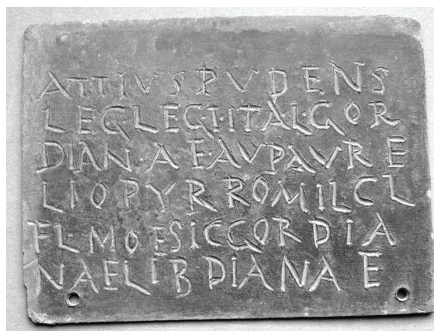 ATTIVSPVDENS
LEGLEG·I·ITAL·GOR
DIAN·AEAVPAVRE
LIOPYRROMILCL
FLMOESICGORDIA
NAELIBDIANAE